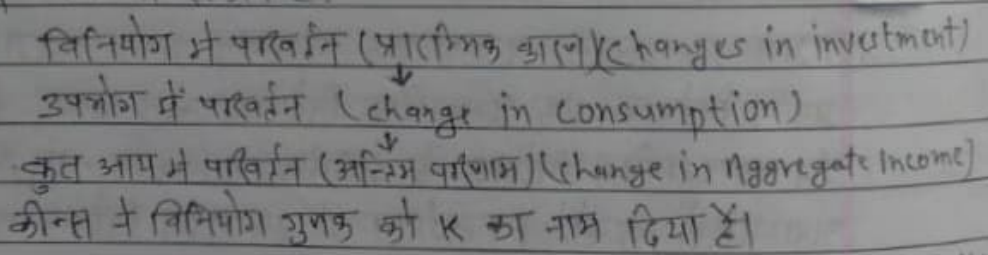 विनियोग में परिवर्तन (प्रारम्भिक कारण)(changes in investment)
↓
उपभोग में परिवर्तन (change in consumption)
↓
कुल आय में परिवर्तन (अन्तिम परिणाम)(change in Aggregate Income)
कीन्स ने विनियोग गुणक को K का नाम दिया है।